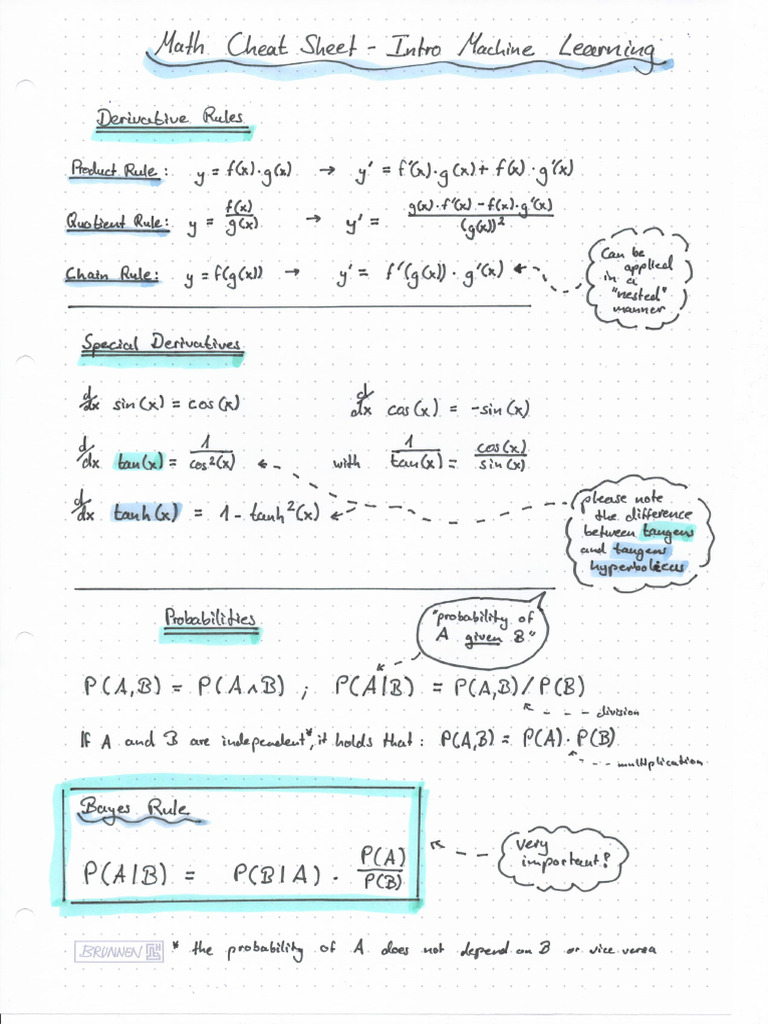 Math Cheat Sheet - Intro Machine Learning
Derivative Rules
Product Rule: y = f(x)·g(x) → y' = f'(x)·g(x) + f(x)·g'(x)
Quotient Rule: y = f(x)/g(x) → y' = (g(x)·f'(x) - f(x)·g'(x))/(g(x))²
Chain Rule: y = f(g(x)) → y' = f'(g(x))·g'(x)
Can be
applied
in a
"nested"
manner
Special Derivatives
d/dx sin(x) = cos(x) d/dx cos(x) = -sin(x)
d/dx tan(x) = 1/cos²(x) with 1/tan(x) = cos(x)/sin(x)
d/dx tanh(x) = 1 - tanh²(x)
please note
the difference
between tangens
and tangens
hyperbolicus
Probabilities
"probability of
A given B"
P(A,B) = P(A∧B) ; P(A|B) = P(A,B)/P(B)
division
If A and B are independent*, it holds that: P(A,B) = P(A)·P(B)
multiplication
Bayes Rule
P(A|B) = P(B|A) · P(A)/P(B)
very
important!
BRUNNEN * the probability of A does not depend on B or vice versa